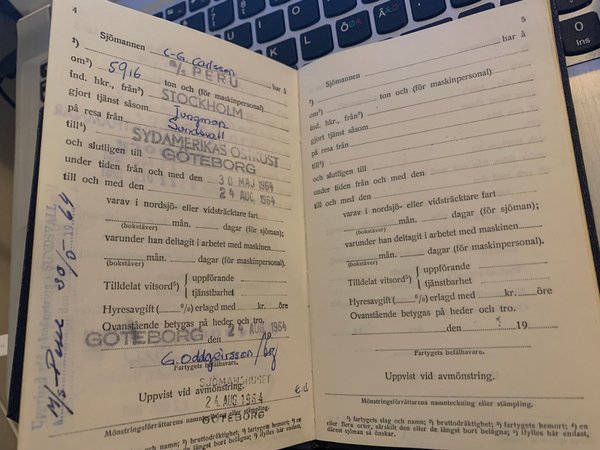 4
Sjömannen C-G. Carlsson har å
¹) M/S PERU
om²) 5916 ton och (för maskinpersonal).
ind. hkr., från³) STOCKHOLM
gjort tjänst såsom Jungman
på resa från Sundsvall
till⁴) SYDAMERIKAS OSTKUST
och slutligen till GÖTEBORG
under tiden från och med den 30 MAJ 1964
till och med den 24 AUG 1964
varav i nordsjö- eller vidsträcktare fart
mån. dagar (för sjöman);
(bokstäver)
varunder han deltagit i arbetet med maskinen
mån. dagar (för maskinpersonal).
(bokstäver)
Tilldelat vitsord⁵) { uppförande
tjänstbarhet
Hyresavgift ( %) erlagd med kr. öre
Ovanstående betygas på heder och tro.
GÖTEBORG den 24 AUG 1964
G. Oddgeirsson
Fartygets befälhavare.
Uppvist vid avmönstring.
SJÖMANSHUSET
24 AUG 1964
GÖTEBORG
Mönstringsförrättarens namnteckning eller stämpling.
M/S Peru 30/5-1964
5
Sjömannen har å
¹)
om²) ton och (för maskinpersonal).
ind. hkr., från³)
gjort tjänst såsom
på resa från
till⁴)
och slutligen till
under tiden från och med den
till och med den
varav i nordsjö- eller vidsträcktare fart
mån. dagar (för sjöman);
(bokstäver)
varunder han deltagit i arbetet med maskinen
mån. dagar (för maskinpersonal).
(bokstäver)
Tilldelat vitsord⁵) { uppförande
tjänstbarhet
Hyresavgift ( %) erlagd med kr. öre
Ovanstående betygas på heder och tro.
den 19
Fartygets befälhavare.
Uppvist vid avmönstring.
Mönstringsförrättarens namnteckning eller stämpling.
¹) fartygets slag och namn; ²) bruttodräktighet; ³) fartygets hemort; ⁴) en
eller flera orter, särskilt den eller de längst bort belägna; ⁵) ifylles här endast,
direst sjöman så önskar.
Ins